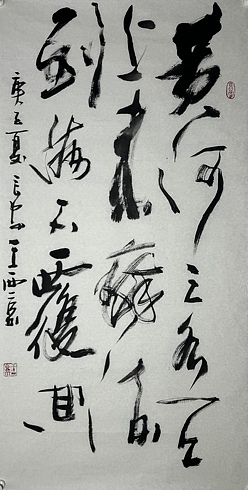 黄河之水天
上来奔流
到海不覆回
庚子夏